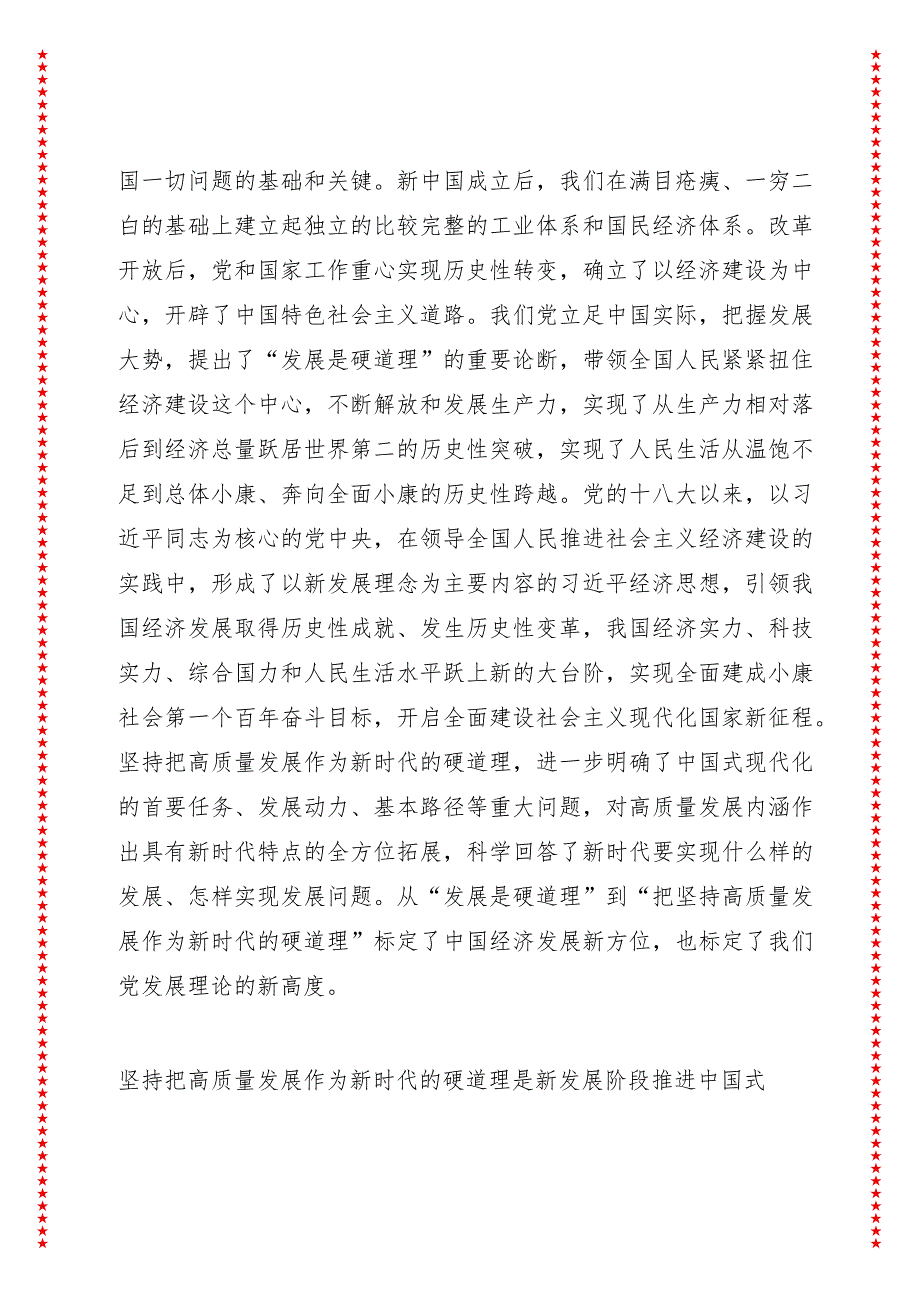 国一切问题的基础和关键。新中国成立后，我们在满目疮痍、一穷二
白的基础上建立起独立的比较完整的工业体系和国民经济体系。改革
开放后，党和国家工作重心实现历史性转变，确立了以经济建设为中
心，开辟了中国特色社会主义道路。我们党立足中国实际，把握发展
大势，提出了“发展是硬道理”的重要论断，带领全国人民紧紧扭住
经济建设这个中心，不断解放和发展生产力，实现了从生产力相对落
后到经济总量跃居世界第二的历史性突破，实现了人民生活从温饱不
足到总体小康、奔向全面小康的历史性跨越。党的十八大以来，以习
近平同志为核心的党中央，在领导全国人民推进社会主义经济建设的
实践中，形成了以新发展理念为主要内容的习近平经济思想，引领我
国经济发展取得历史性成就、发生历史性变革，我国经济实力、科技
实力、综合国力和人民生活水平跃上新的大台阶，实现全面建成小康
社会第一个百年奋斗目标，开启全面建设社会主义现代化国家新征程。
坚持把高质量发展作为新时代的硬道理，进一步明确了中国式现代化
的首要任务、发展动力、基本路径等重大问题，对高质量发展内涵作
出具有新时代特点的全方位拓展，科学回答了新时代要实现什么样的
发展、怎样实现发展问题。从“发展是硬道理”到“把坚持高质量发
展作为新时代的硬道理”标定了中国经济发展新方位，也标定了我们
党发展理论的新高度。
坚持把高质量发展作为新时代的硬道理是新发展阶段推进中国式